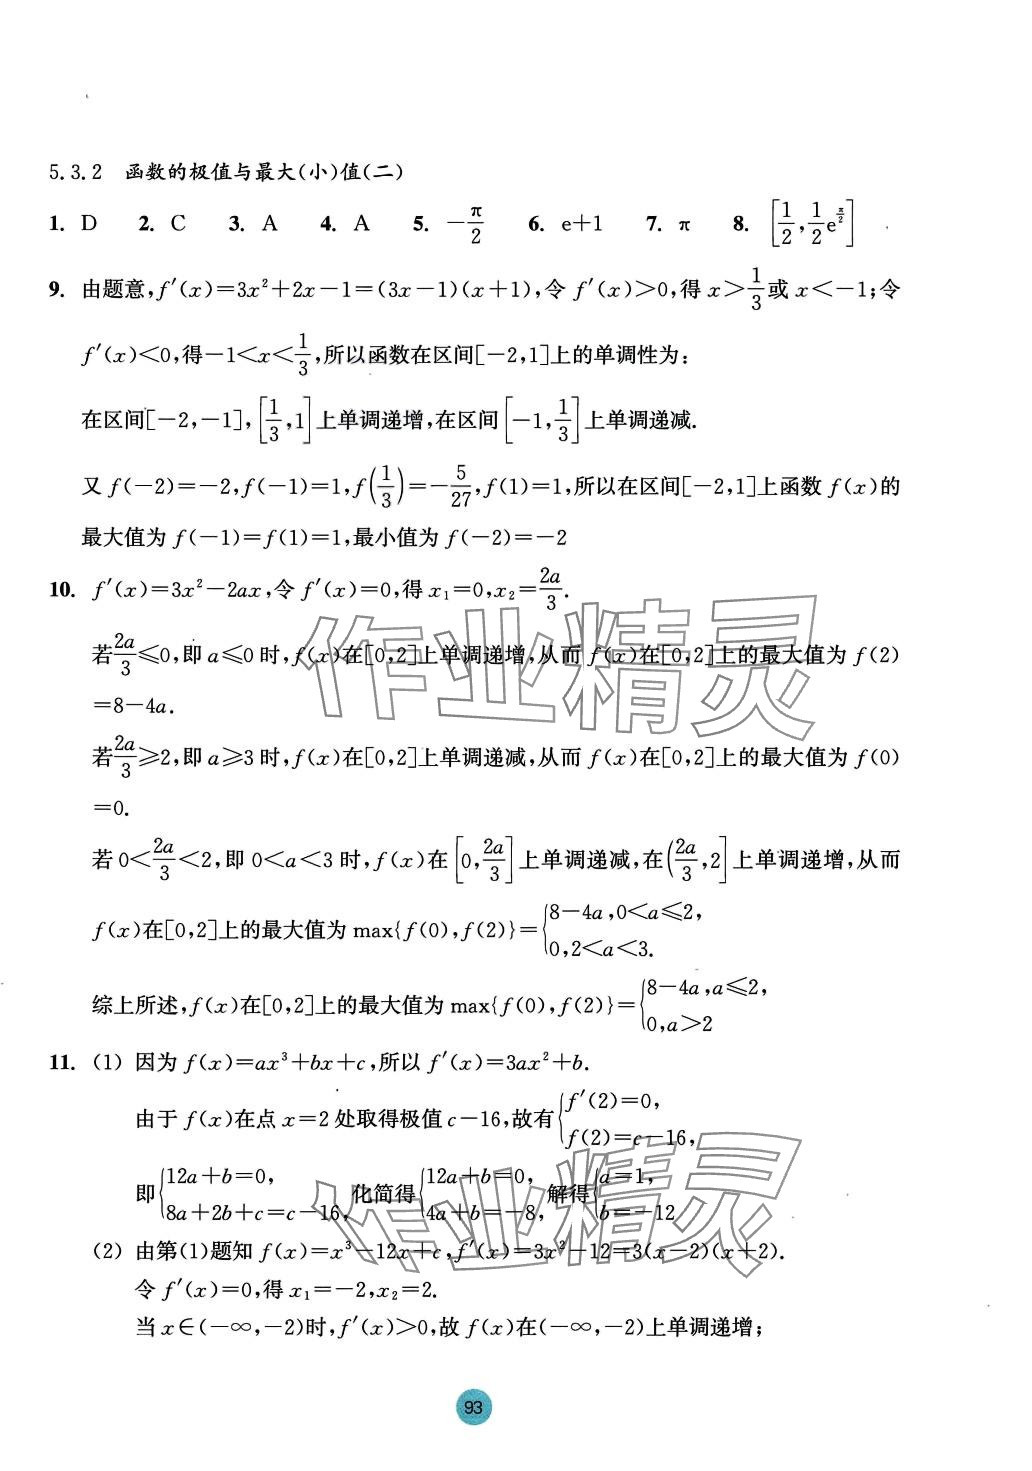 5.3.2 函数的极值与最大(小)值(二)
1. D 2. C 3. A 4. A 5. −π/2 6. e+1 7. π 8. [1/2, 1/2 e^(π/2)]
9. 由题意,f′(x)=3x²+2x−1=(3x−1)(x+1),令 f′(x)>0,得 x>1/3 或 x<−1;令
f′(x)<0,得−1<x<1/3,所以函数在区间[−2,1]上的单调性为:
在区间[−2,−1],[1/3,1]上单调递增,在区间[−1,1/3]上单调递减.
又 f(−2)=−2,f(−1)=1,f(1/3)=−5/27,f(1)=1,所以在区间[−2,1]上函数 f(x)的
最大值为 f(−1)=f(1)=1,最小值为 f(−2)=−2
10. f′(x)=3x²−2ax,令 f′(x)=0,得 x₁=0,x₂=2a/3.
若2a/3≤0,即 a≤0 时,f(x)在[0,2]上单调递增,从而 f(x)在[0,2]上的最大值为 f(2)
=8−4a.
若2a/3≥2,即 a≥3 时,f(x)在[0,2]上单调递减,从而 f(x)在[0,2]上的最大值为 f(0)
=0.
若 0<2a/3<2,即 0<a<3 时,f(x)在[0,2a/3]上单调递减,在(2a/3,2]上单调递增,从而
f(x)在[0,2]上的最大值为 max{f(0),f(2)}={8−4a,0<a≤2,
0,2<a<3.
综上所述,f(x)在[0,2]上的最大值为 max{f(0),f(2)}={8−4a,a≤2,
0,a>2
11. (1) 因为 f(x)=ax³+bx+c,所以 f′(x)=3ax²+b.
由于 f(x)在点 x=2 处取得极值 c−16,故有{f′(2)=0,
f(2)=c−16,
即{12a+b=0, 化简得{12a+b=0, 解得{a=1,
8a+2b+c=c−16, 4a+b=−8, b=−12
(2) 由第(1)题知 f(x)=x³−12x+c,f′(x)=3x²−12=3(x−2)(x+2).
令 f′(x)=0,得 x₁=−2,x₂=2.
当 x∈(−∞,−2)时,f′(x)>0,故 f(x)在(−∞,−2)上单调递增;
93
作业精灵
作业精灵